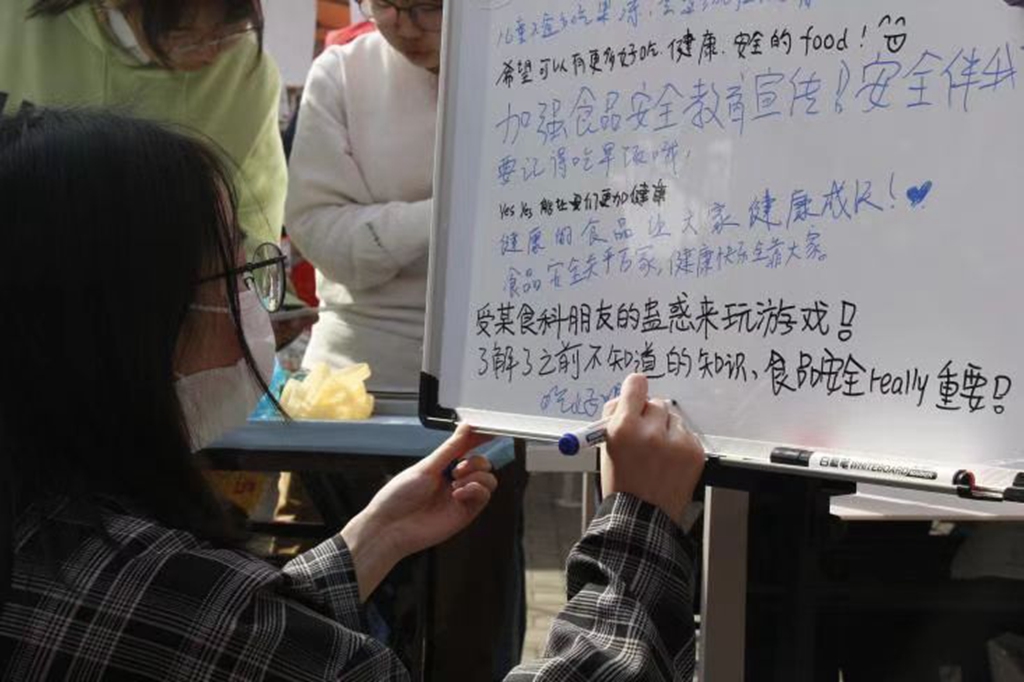 希望可以有更多好吃、健康、安全的 food！
加强食品安全教育宣传！安全伴我
要记得吃早饭哦，
yes yes 能让我们更加健康
健康的食品让大家健康成长！
食品安全关乎百家，健康快乐全靠大家。
受某食科朋友的蛊惑来玩游戏！
了解了之前不知道的知识、食品安全really重要！
吃好
白板笔 WHITEBOARD